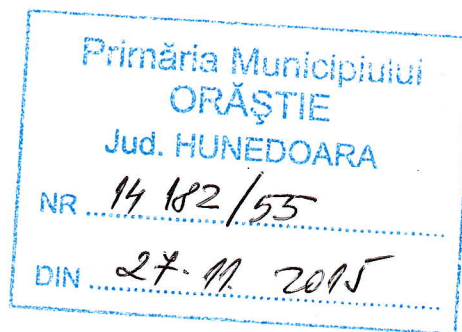 Primăria Municipiului
ORĂȘTIE
Jud. HUNEDOARA
NR 14 182/55
DIN 27. 11. 2015